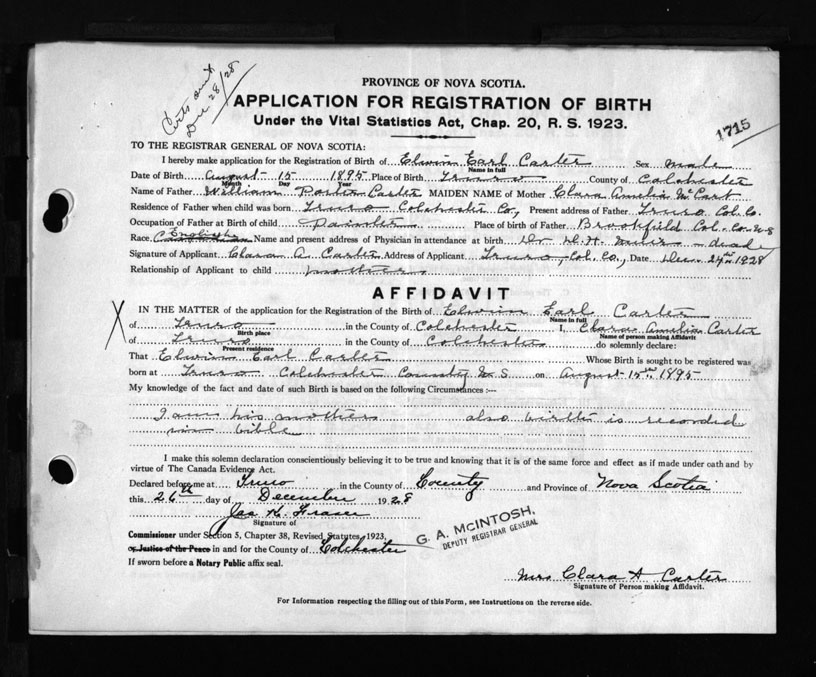 Certs sent
Dec 28/28
PROVINCE OF NOVA SCOTIA.
APPLICATION FOR REGISTRATION OF BIRTH
Under the Vital Statistics Act, Chap. 20, R. S. 1923.
1715
TO THE REGISTRAR GENERAL OF NOVA SCOTIA:
I hereby make application for the Registration of Birth of Elwin Earl Carter Sex male
Name in full
Date of Birth August 15 1895 Place of Birth Truro County of Colchester
Month Day Year
Name of Father William Porter Carter MAIDEN NAME of Mother Clara Amelia McCart
Residence of Father when child was born Truro Colchester Co., Present address of Father Truro Col. Co.
Occupation of Father at Birth of child Painter Place of birth of Father Brookfield Col. Co. N.S
English
Race, Name and present address of Physician in attendance at birth Dr D. H. dead
Signature of Applicant Clara A. Carter Address of Applicant Truro, Col. Co., Date Dec. 24th 1928
Relationship of Applicant to child mother
AFFIDAVIT
X
IN THE MATTER of the application for the Registration of the Birth of Elwin Earl Carter
Name in full
of Truro in the County of Colchester I, Clara Amelia Carter
Birth place Name of person making Affidavit
of Truro in the County of Colchester do solemnly declare:
Present residence
That Elwin Earl Carter Whose Birth is sought to be registered was
born at Truro Colchester County N.S. on August 15th 1895
My knowledge of the fact and date of such Birth is based on the following Circumstances :—
I am his mother also birth is recorded
in bible
I make this solemn declaration conscientiously believing it to be true and knowing that it is of the same force and effect as if made under oath and by
virtue of The Canada Evidence Act.
Declared before me at Truro in the County of County and Province of Nova Scotia
this 26th day of December 1928
Jas H. Fraser
Signature of
Commissioner under Section 5, Chapter 38, Revised Statutes, 1923,
or Justice of the Peace in and for the County of Colchester
If sworn before a Notary Public affix seal.
G. A. McINTOSH,
DEPUTY REGISTRAR GENERAL
Mrs Clara A Carter
Signature of Person making Affidavit.
For Information respecting the filling out of this Form, see Instructions on the reverse side.